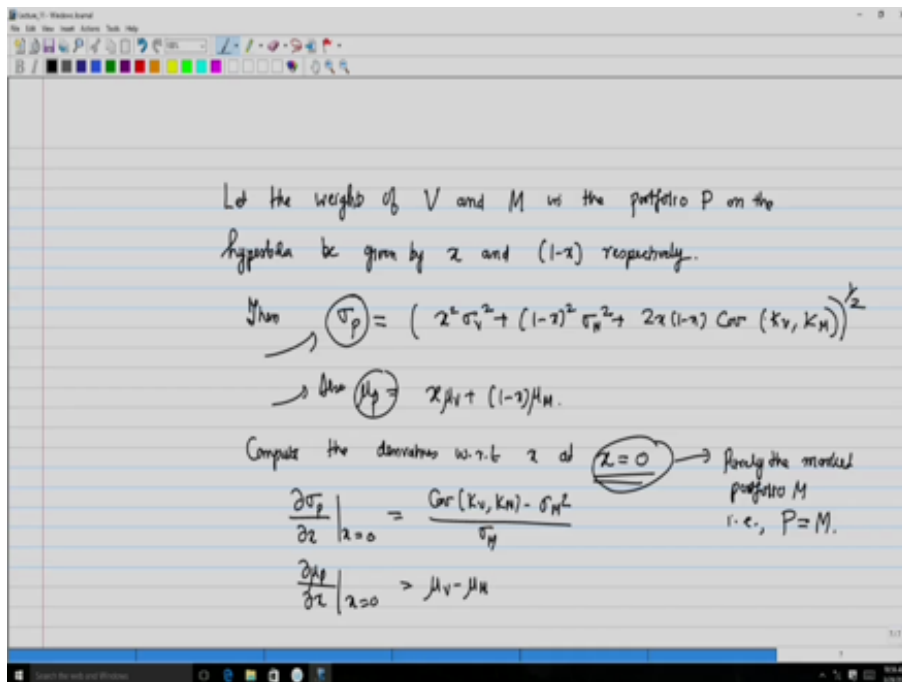 Lecture_11 - Windows Journal
File Edit View Insert Actions Tools Help
B I
Let the weights of V and M in the portfolio P on the
hyperbola be given by x and (1-x) respectively.
Then σ_P = ( x² σ_V² + (1-x)² σ_M² + 2x(1-x) Cov (K_V, K_M) )^1/2
Also μ_P = x μ_V + (1-x) μ_M.
Compute the derivatives w.r.t x at x = 0 → Purely the market
portfolio M
i.e., P = M.
∂σ_P/∂x |x=0 = (Cov (K_V, K_M) - σ_M²)/σ_M
∂μ_P/∂x |x=0 = μ_V - μ_M
Search the web and Windows